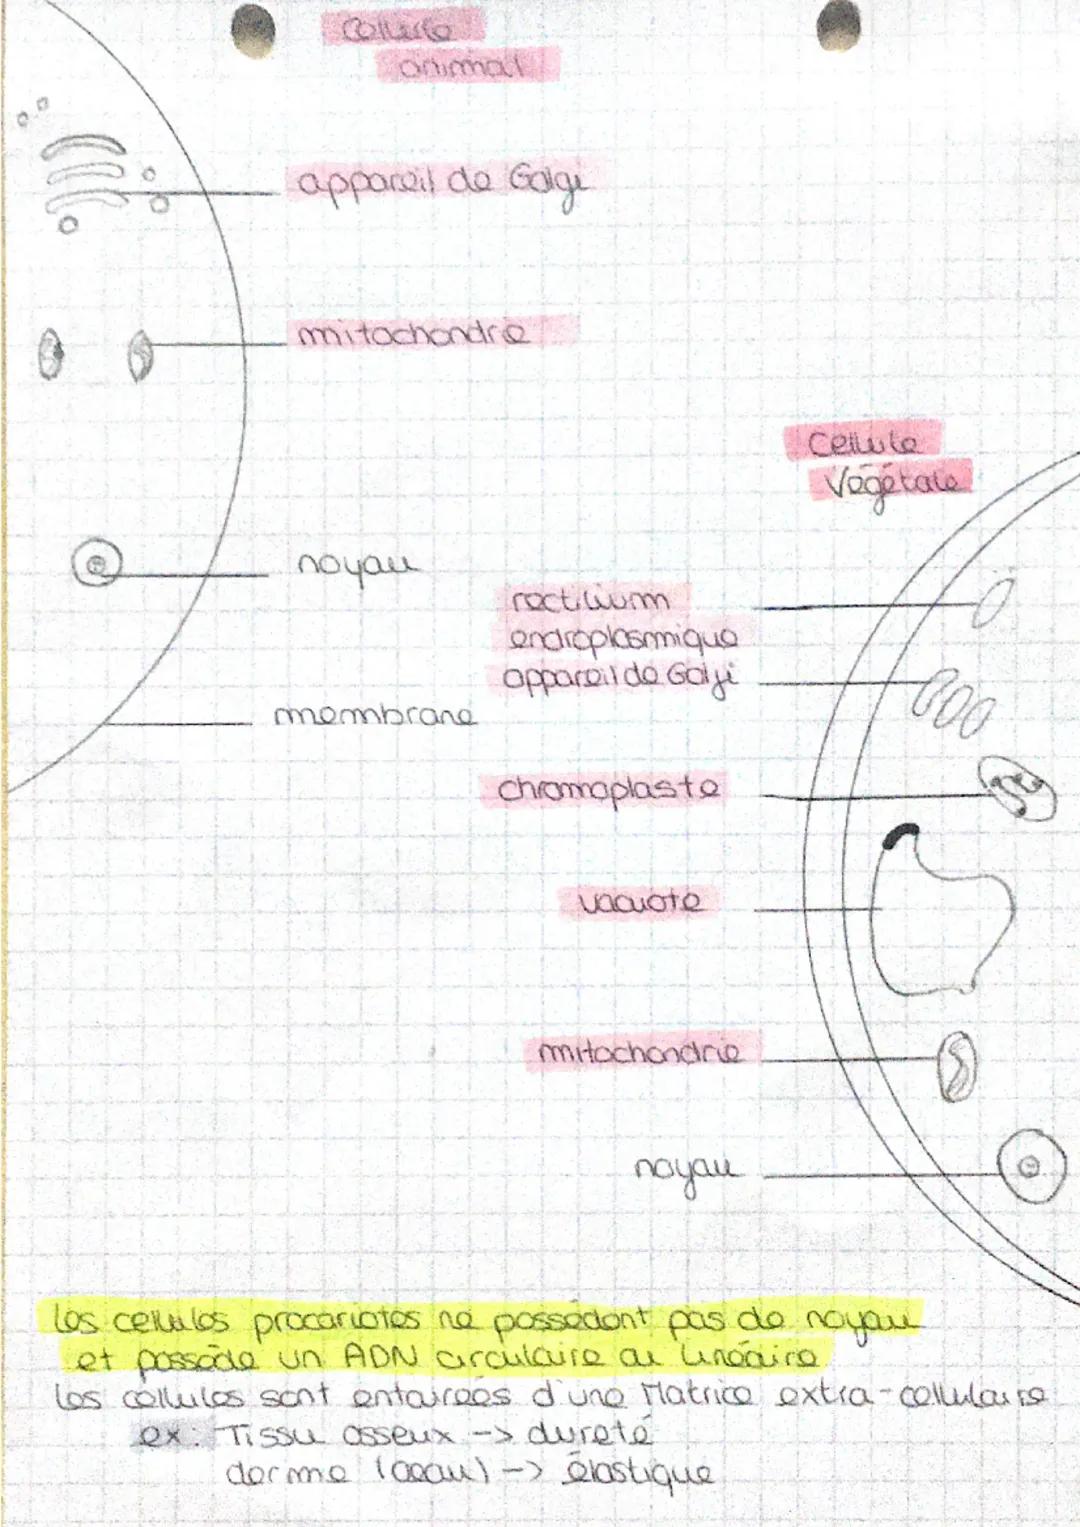 Cellule
animal
appareil de Golgi
mitochondrie
noyau
membrane
Cellule
Végétale
rectilium
endroplasmique
appareil de Golgi
chromoplaste
vacuole
mitochondrie
noyau
les cellules procariotes ne possèdent pas de noyau
et possède un ADN circulaire ou linéaire
les cellules sont entourées d'une Matrice extra-cellulaire
ex: Tissu osseux -> dureté
derme (peau) -> élastique